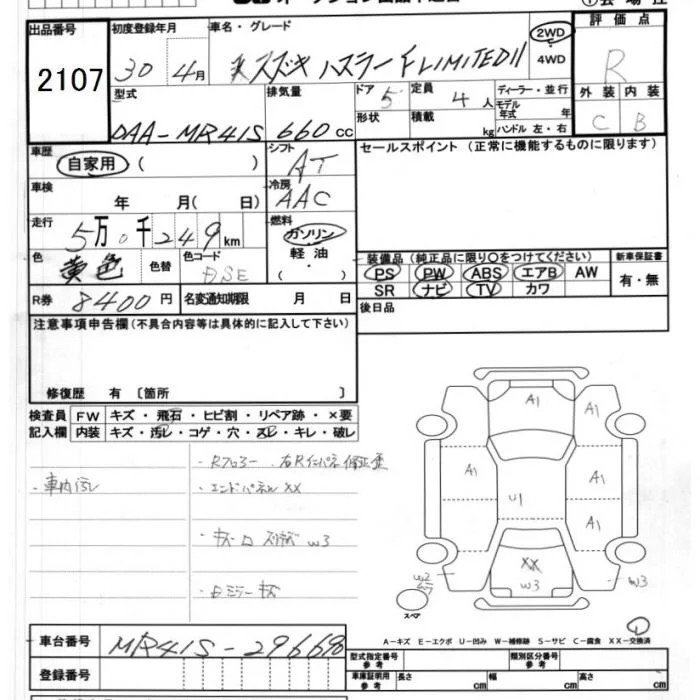 出品番号
2107
初度登録年月
30 4月
車名・グレード
スズキ ハスラー F LIMITED II
2WD
4WD
評価点
R
外装 内装
C B
型式
DAA-MR41S
排気量
660 cc
ドア 5
形状
定員 4 人
積載 kg
ディーラー・並行
モデル年式 年
ハンドル 左・右
車歴
自家用 ( )
シフト
AT
セールスポイント (正常に機能するものに限ります)
車検
年 月( 日)
冷房
AAC
走行
5万0千249km
燃料
ガソリン
軽油
( )
色
黄色
色替
色コード
装備品 (純正品に限り○をつけてください)
PS PW ABS エアB AW
SR ナビ TV カワ
新車保証書
有・無
R券 8400円
名変通知期限 月 日
後日品
注意事項申告欄(不具合内容等は具体的に記入して下さい)
修復歴 有 〔箇所 〕
検査員記入欄
FW キズ・飛石・ヒビ割・リペア跡・×要
内装 キズ・汚レ・コゲ・穴・スレ・キレ・破レ
・車内汚レ
・エンドパネル XX
A1
A1
A1
A1
A1
U1
XX
W3
W2
W3
スペア
車台番号
MR41S-296696
登録番号
A-キズ E-エクボ U-凹み W-補修跡 S-サビ C-腐食 XX-交換済
型式指定番号 参考
類別区分番号 参考
車庫証明用 参考
長さ cm
幅 cm
高さ cm